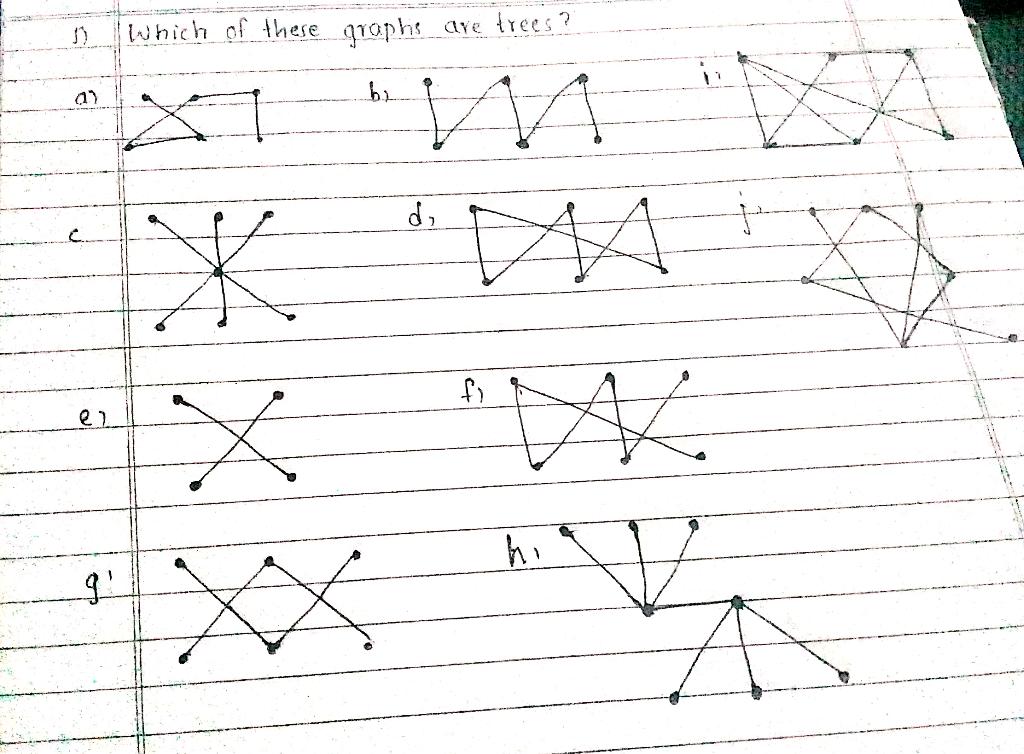 1) Which of these graphs are trees?
a) b) i)
c d, j'
e) f)
g' h,